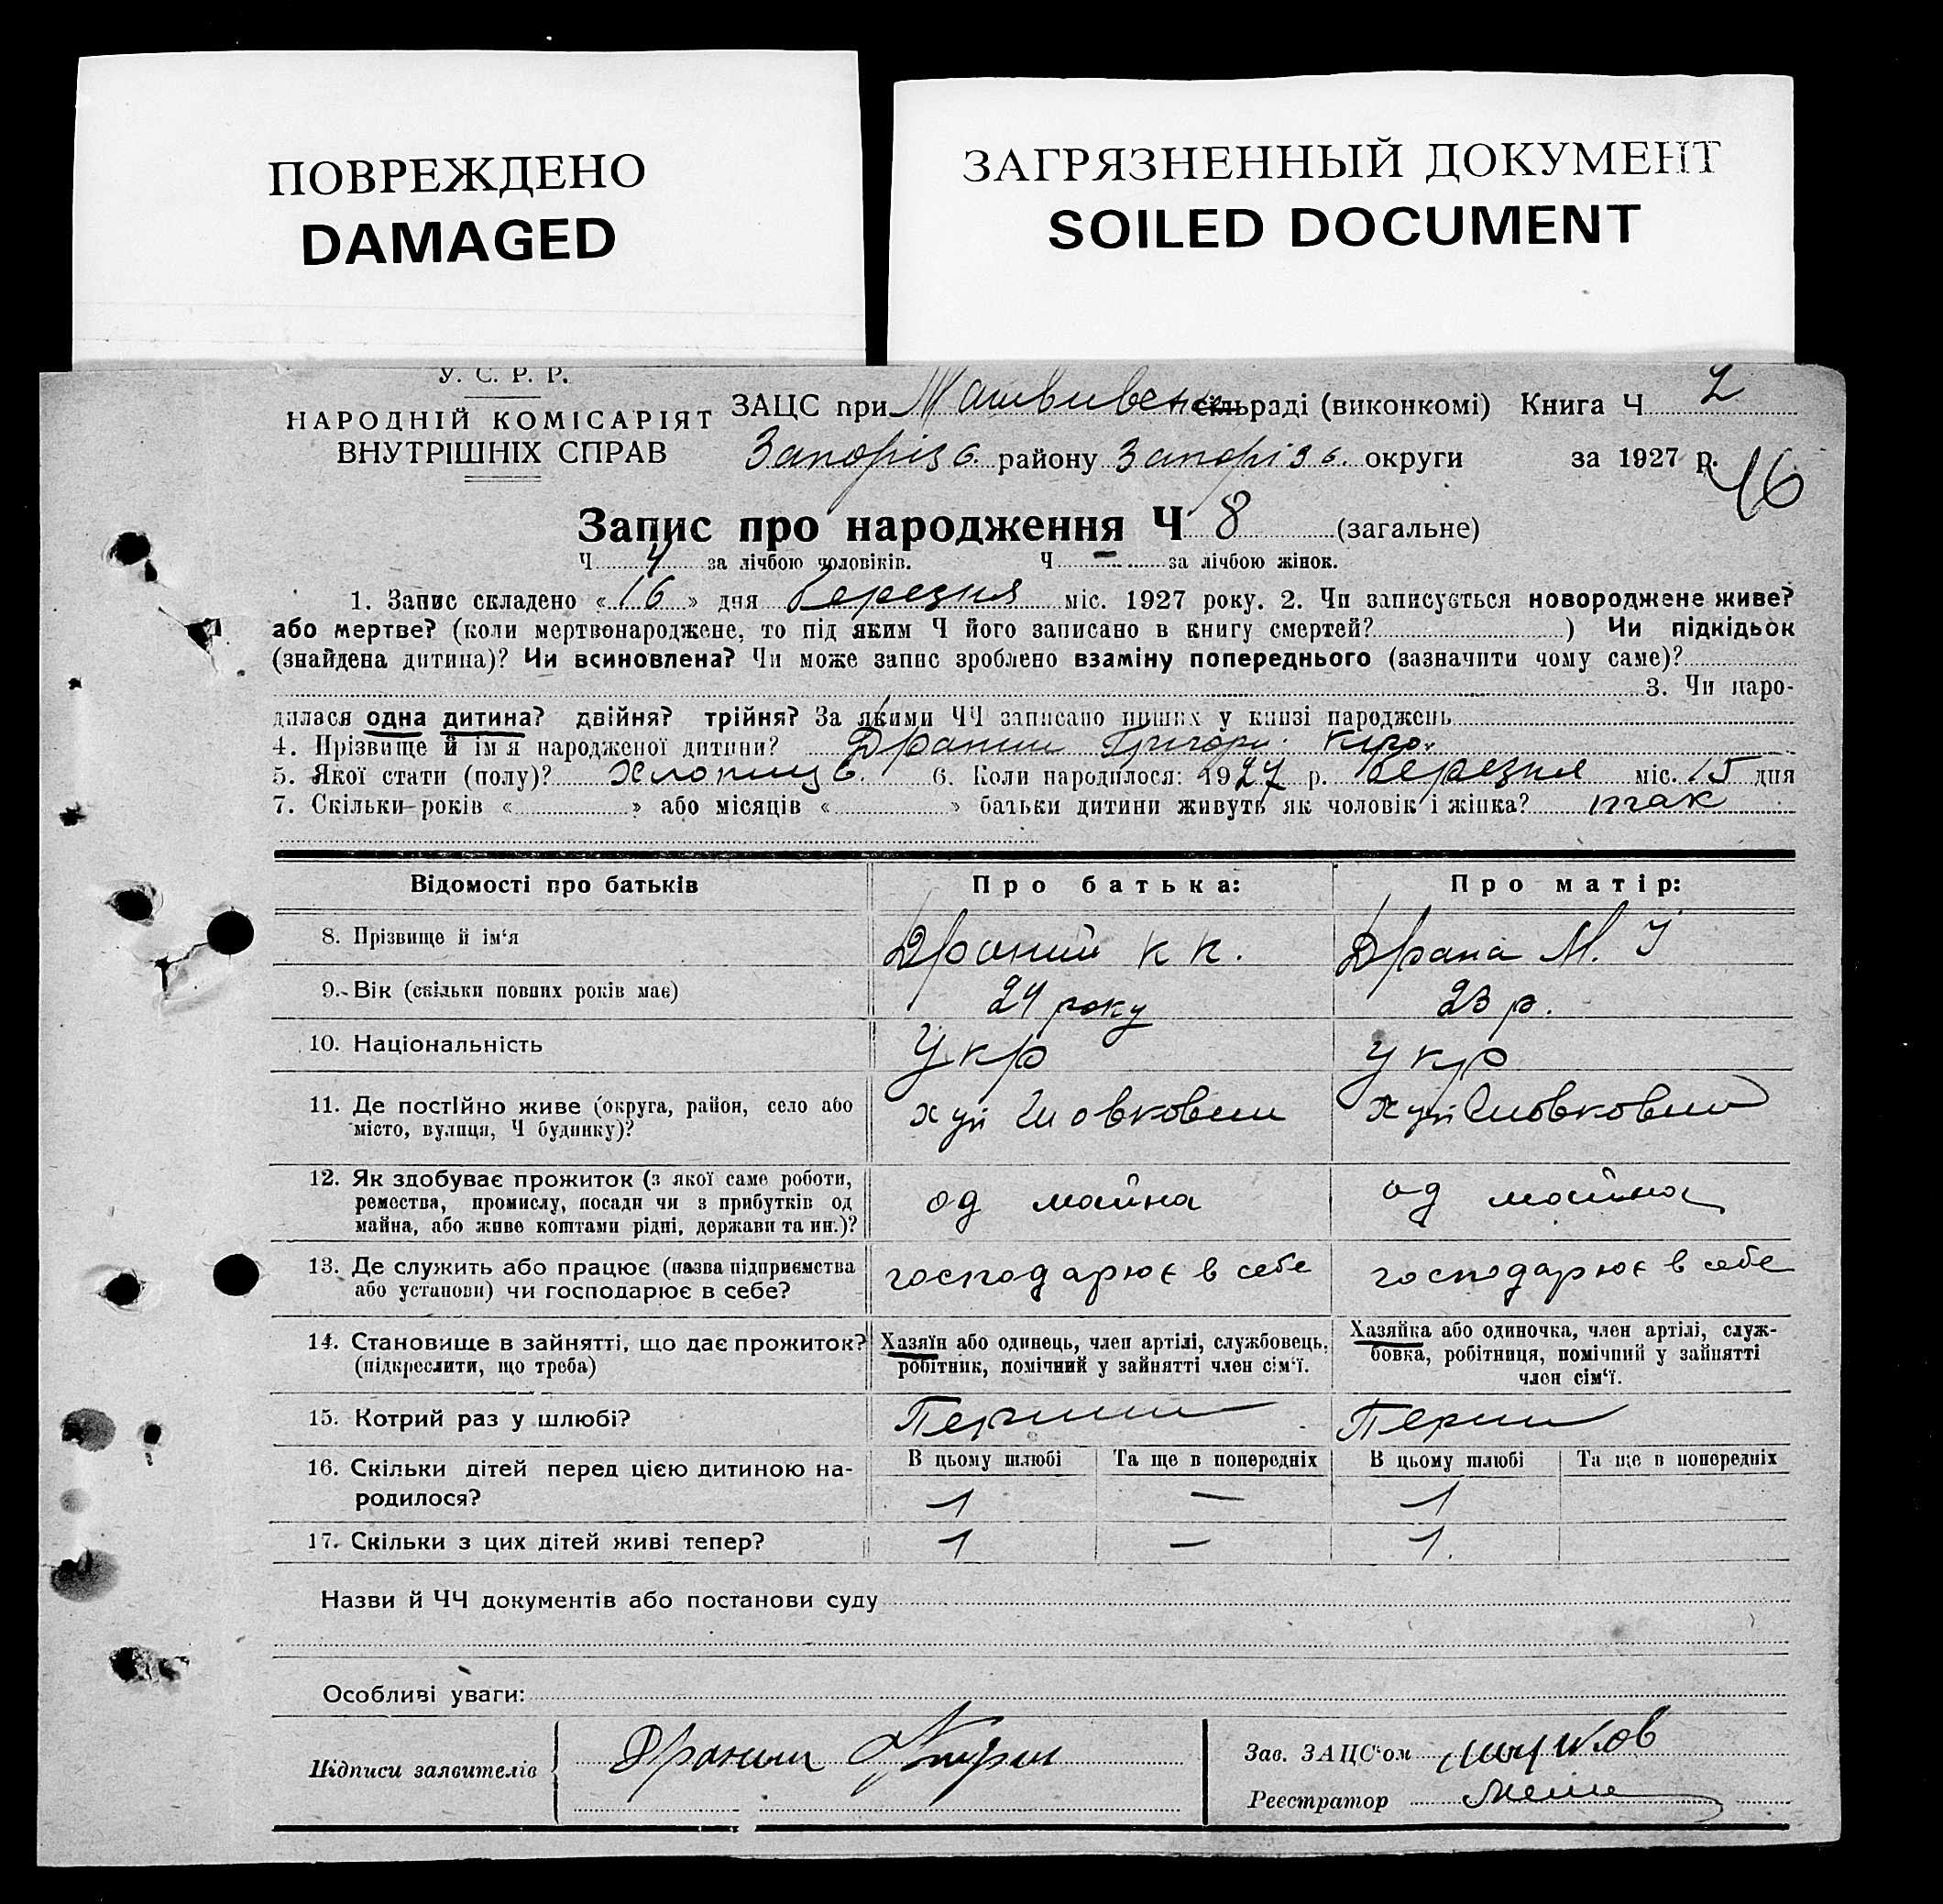 ПОВРЕЖДЕНО
DAMAGED
ЗАГРЯЗНЕННЫЙ ДОКУМЕНТ
SOILED DOCUMENT
У. С. Р. Р.
НАРОДНІЙ КОМІСАРІЯТ
ВНУТРІШНІХ СПРАВ
ЗАЦС при сільраді (виконкомі) Книга Ч 2
Запоріз б. району Запоріз б. округи за 1927 р.
46
Запис про народження Ч 8 (загальне)
Ч 4 за лічбою чоловіків. Ч — за лічбою жінок.
1. Запис складено « 16 » дня березня міс. 1927 року. 2. Чи записується новороджене живе?
або мертве? (коли мертвонароджене, то під яким Ч його записано в книгу смертей? ) Чи підкідьок
(знайдена дитина)? Чи всиновлена? Чи може запис зроблено взаміну попереднього (зазначити чому саме)?
3. Чи наро-
дилася одна дитина? двійня? трійня? За якими ЧЧ записано инших у книзі народжень
4. Прізвище й ім'я народженої дитини? Драний Григорі.
5. Якої стати (полу)? Хлопиц б. 6. Коли народилося: 1927 р. березня міс. 15 дня
7. Скільки років « » або місяців « » батьки дитини живуть як чоловік і жінка? так
Відомості про батьків Про батька: Про матір:
8. Прізвище й ім'я Драний К К. Драна М. І
9. Вік (скільки повних років має) 24 року 23 р.
10. Національність Укр Укр
11. Де постійно живе (округа, район, село або
місто, вулиця, Ч будинку)? хут Шовковий хут Шовковий
12. Як здобуває прожиток (з якої саме роботи,
ремества, промислу, посади чи з прибутків од
майна, або живе коштами рідні, держави та ин.)? од майна од майна
13. Де служить або працює (назва підприємства
або установи) чи господарює в себе? господарює в себе господарює в себе
14. Становище в зайнятті, що дає прожиток?
(підкреслити, що треба)
Хазяїн або одинець, член артілі, службовець,
робітник, помічний у зайнятті член сім'ї.
Хазяйка або одиночка, член артілі, служ-
бовка, робітниця, помічний у зайнятті
член сім'ї.
15. Котрий раз у шлюбі? Перший Перши
16. Скільки дітей перед цією дитиною на-
родилося?
В цьому шлюбі Та ще в попередніх В цьому шлюбі Та ще в попередніх
1 — 1
17. Скільки з цих дітей живі тепер? 1 — 1.
Назви й ЧЧ документів або постанови суду
Особливі уваги:
Підписи заявителів Драний
Зав. ЗАЦС'ом
Реєстратор